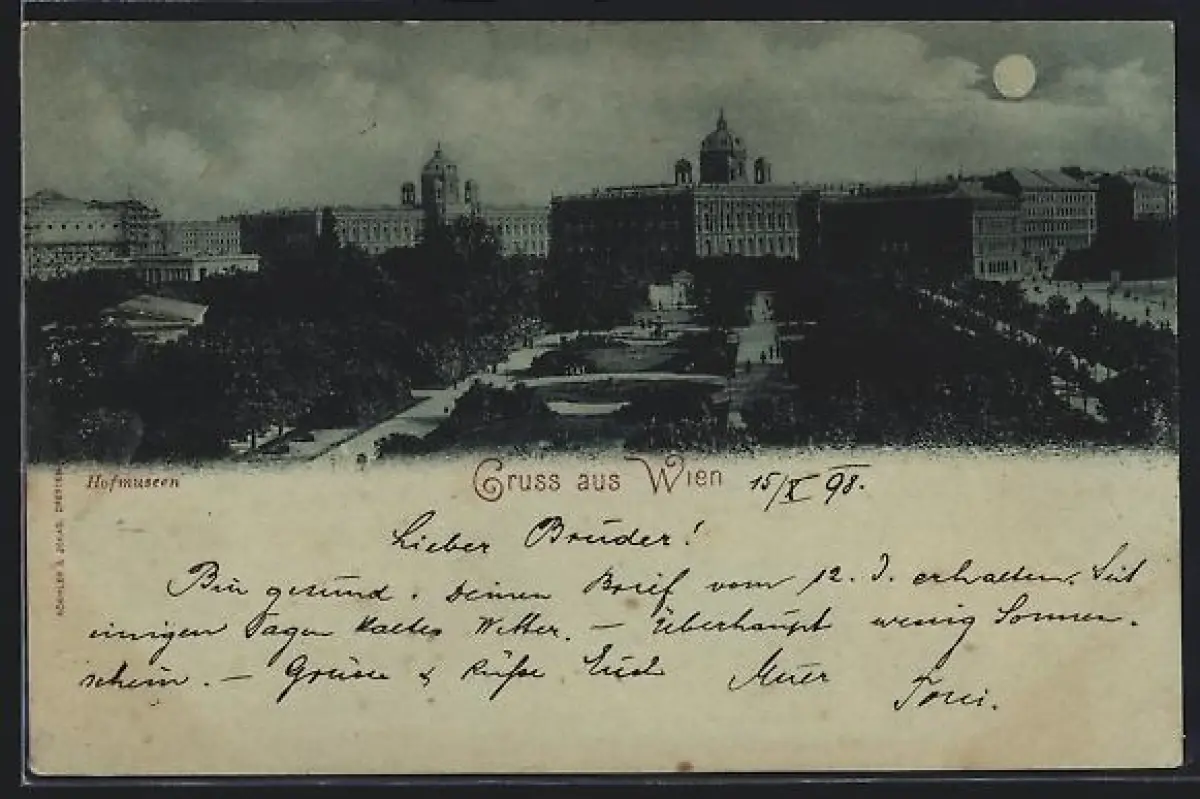 Hofmuseen
Gruss aus Wien 15/X 98.
Lieber Bruder!
Bin gesund. Deinen Brief vom 12. d. erhalten. Seit
einigen Tagen kaltes Wetter. – Überhaupt wenig Sonnen-
schein. – Grüsse & küsse Euch
Toni.
RÖMMLER & JONAS, DRESDEN